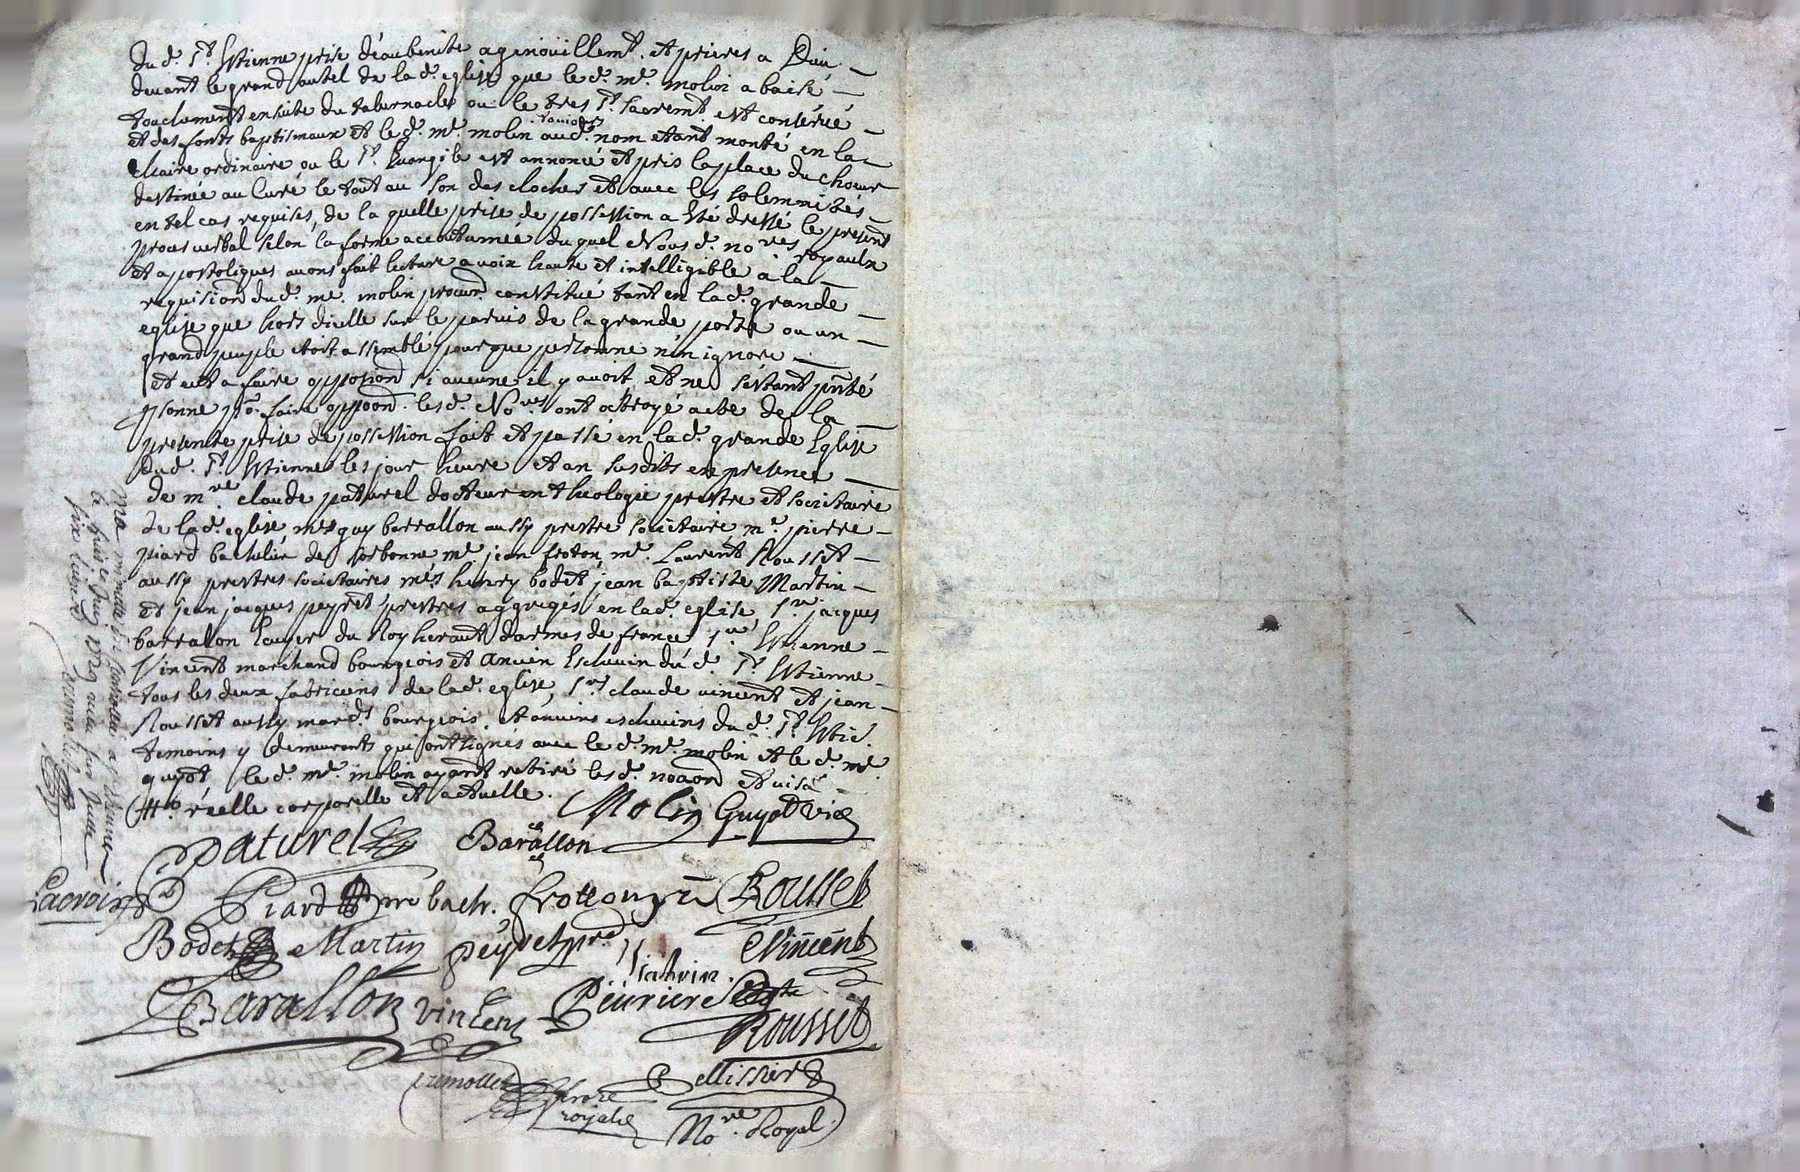 dud. St. Estienne prise d'eau benite agenoüillemt. et prieres a Dieu
devant le grand autel de lad. eglise que led. me. molin a baisé
touchement ensuite du tabernacle ou le tres St. sacremt. est conservé
et des fonts baptismaux et led. me. molin aud. nom etant monté en la
chaire ordinaire ou le St. Evangile est annoncé et pris la place du choeur
destinée au Curé le tout au son des cloches et avec les solemnités
en tel cas requises, de la quelle prise de possession a Eté dressé le present
proces verbal selon la forme accoutumée duquel Nous d. nores royaulx
et apostoliques avons fait lecture a voix haute et intelligible a la
requisiond dud. me. molin procur. constitué tant en lad. grande
eglise que hors d'icelle sur le parvis de la grande porte ou un
grand peuple etoit assemblé pour que personne n'en ignore
et eut a faire opposiond si aucune il y avoit et ne s'étant pnté
psonne po. faire oppoond. lesd. Nores ont octroyé acte de la
presente prise de possession fait et passé en lad. grande Eglise
dud. St. Estienne les jour heure et an susdits en presence
de mre claude paturel docteur en theologie prestre et societaire
de lad. eglise mes guy barrallon aussy prestre societaire me. pierre
piard bachelier de sorbonne me jean froton me. Laurent Rousset
aussy prestres societaires mes henry bodet jean baptiste Martin
et jean jacques peyret prestres aggregés en lad. eglise, sr. jacques
barralon Ecuyer du Roy heraut d'armes de france sr. Estienne
Vincent marchand bourgeois et ancien Eschevin dud. St. Estienne
tous les deux fabriciens de lad. eglise, srs claude vincent et jean
Rousset aussy marcds bourgeois et anciens eschevins dud. St. Etie.
temoins y demeurants qui ont signés avec led. me. molin et led. me.
guyot led. me. molin ayant retiré lesd.
réelle corporelle et actuelle.
Molin Guyot
Paturel Barallon
Lacroix Piard Frotton Rousset
Bodet Martin peyret Vincent
Barallon vincens Peuriere
Rousset
tremollet
royale
Pellissier
Nore. Royal